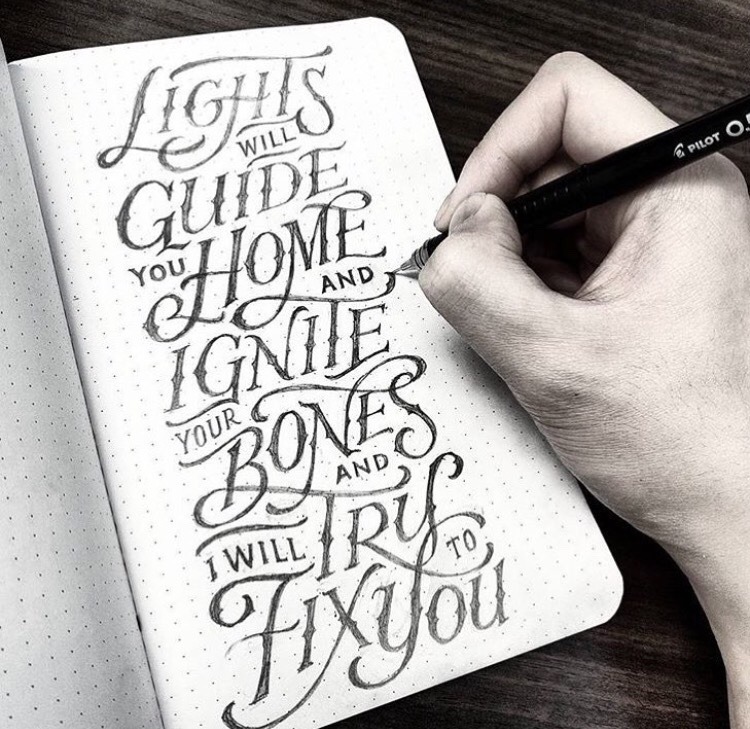 LIGHTS
WILL
GUIDE
YOU HOME AND
IGNITE
YOUR BONES
AND
I WILL TRY TO
FIX YOU
PILOT